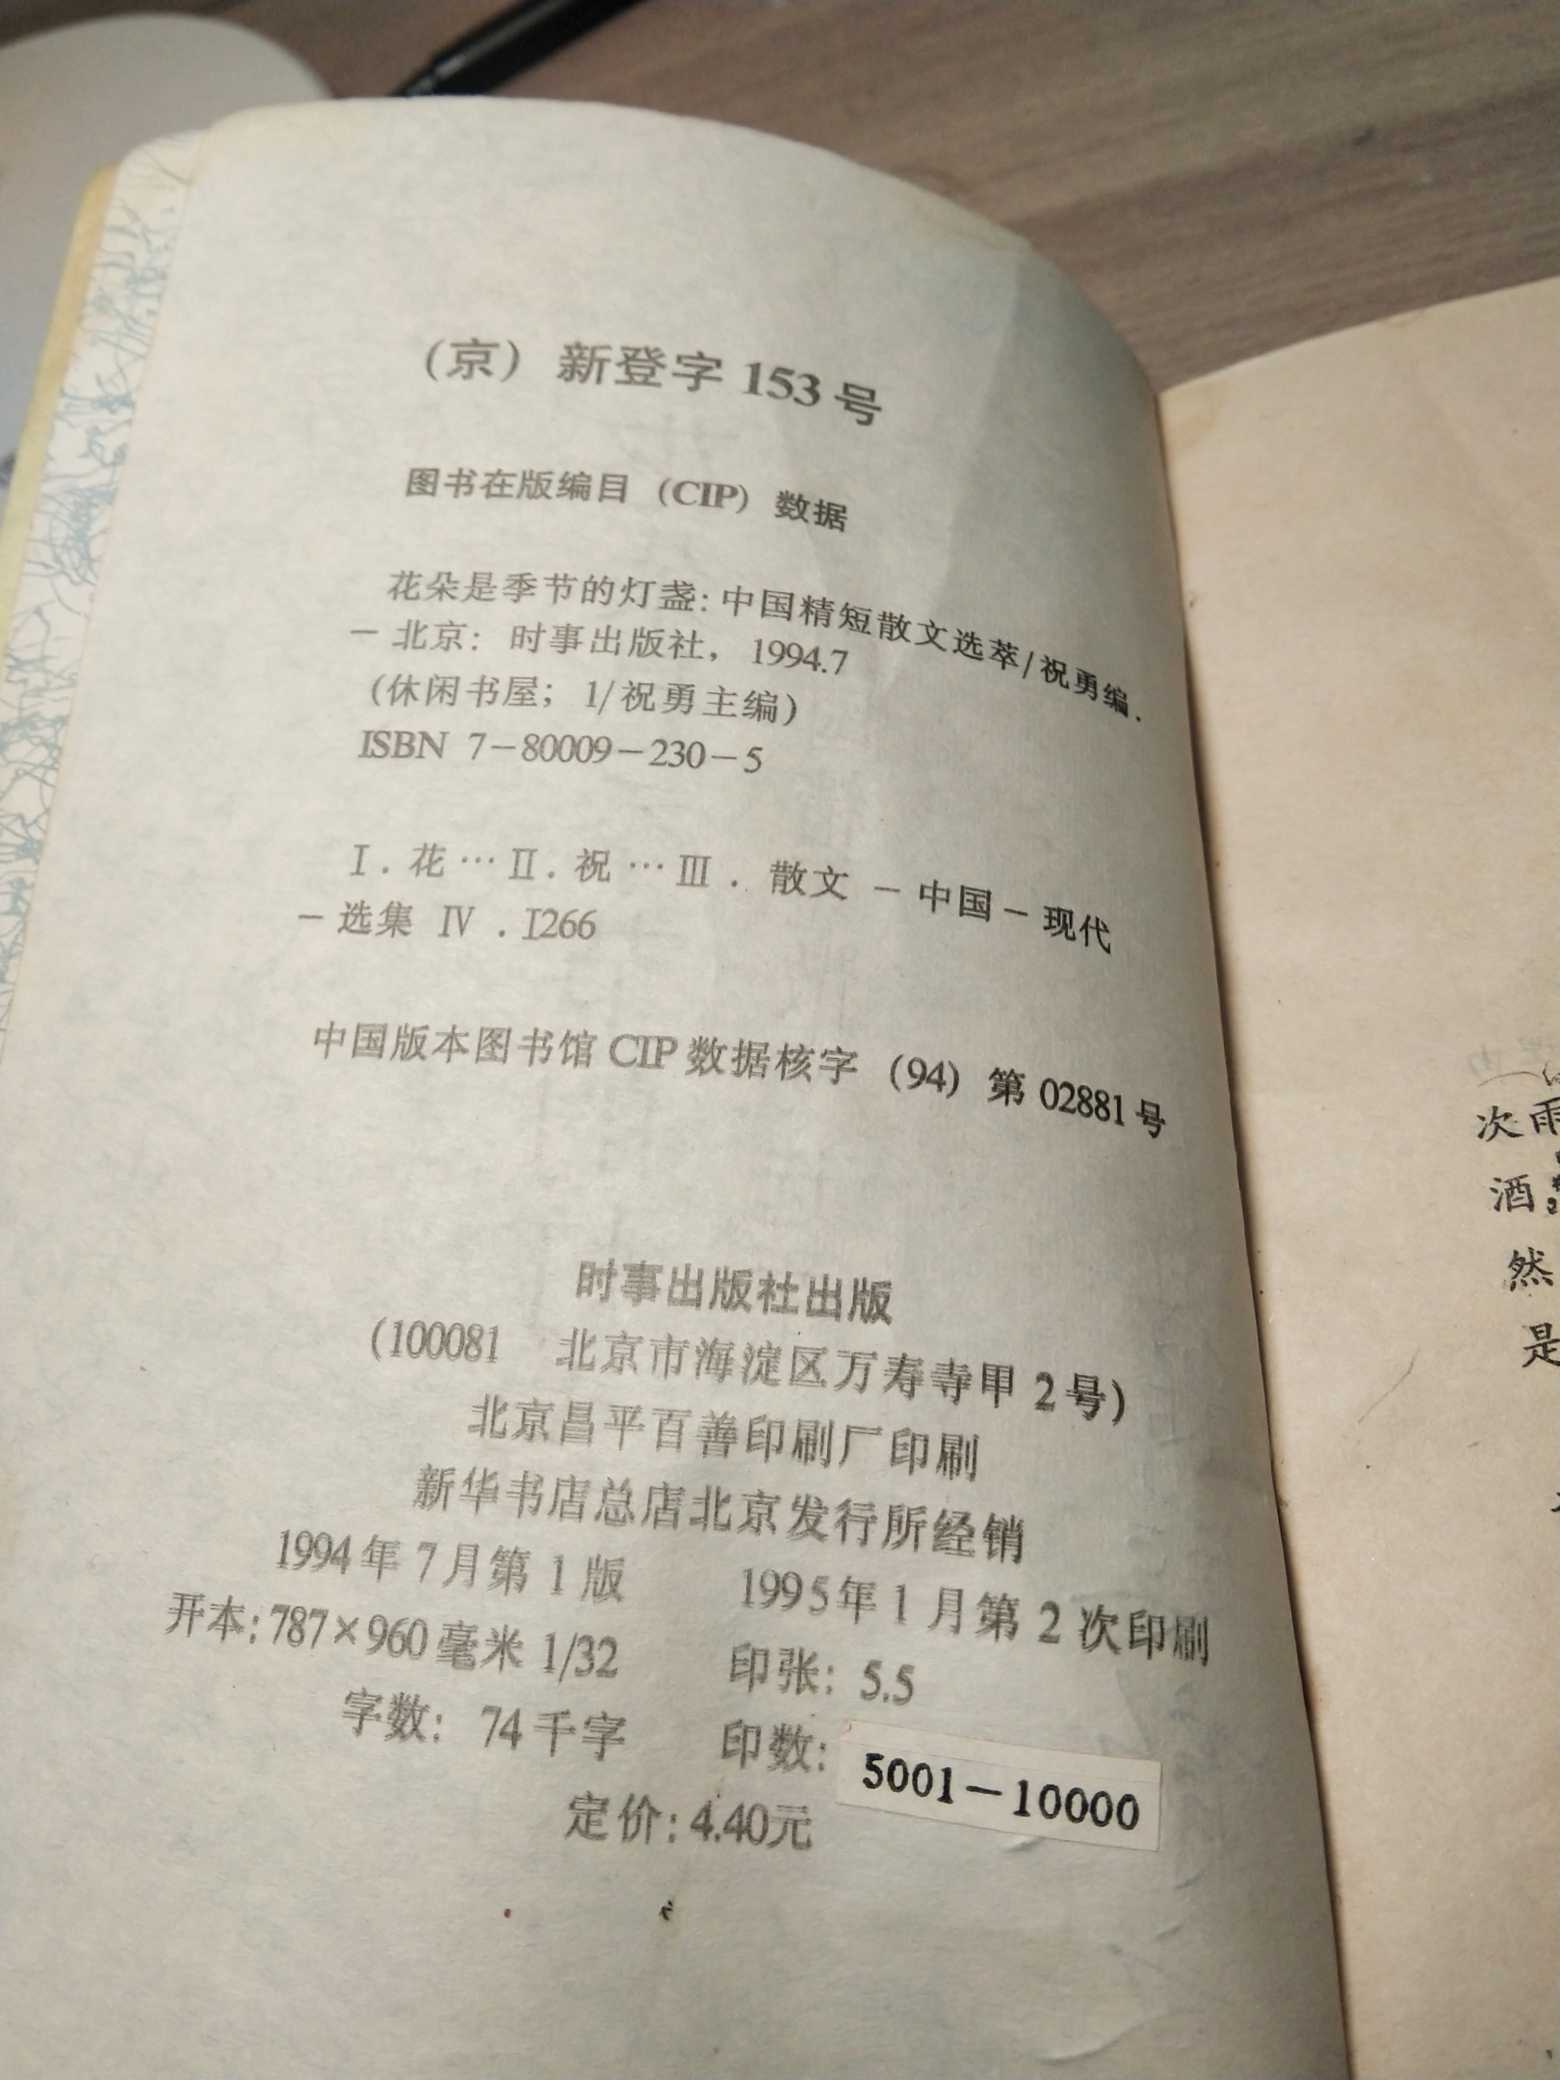 (京) 新登字 153 号
图书在版编目 (CIP) 数据
花朵是季节的灯盏: 中国精短散文选萃/祝勇编.
－北京: 时事出版社, 1994.7
(休闲书屋; 1/祝勇主编)
ISBN 7－80009－230－5
Ⅰ. 花… Ⅱ. 祝… Ⅲ. 散文－中国－现代
－选集 Ⅳ. I266
中国版本图书馆 CIP 数据核字 (94) 第 02881 号
时事出版社出版
(100081 北京市海淀区万寿寺甲 2 号)
北京昌平百善印刷厂印刷
新华书店总店北京发行所经销
1994 年 7 月第 1 版 1995 年 1 月第 2 次印刷
开本: 787×960 毫米 1/32 印张: 5.5
字数: 74 千字 印数: 5001－10000
定价: 4.40元
次雨
酒
然
是